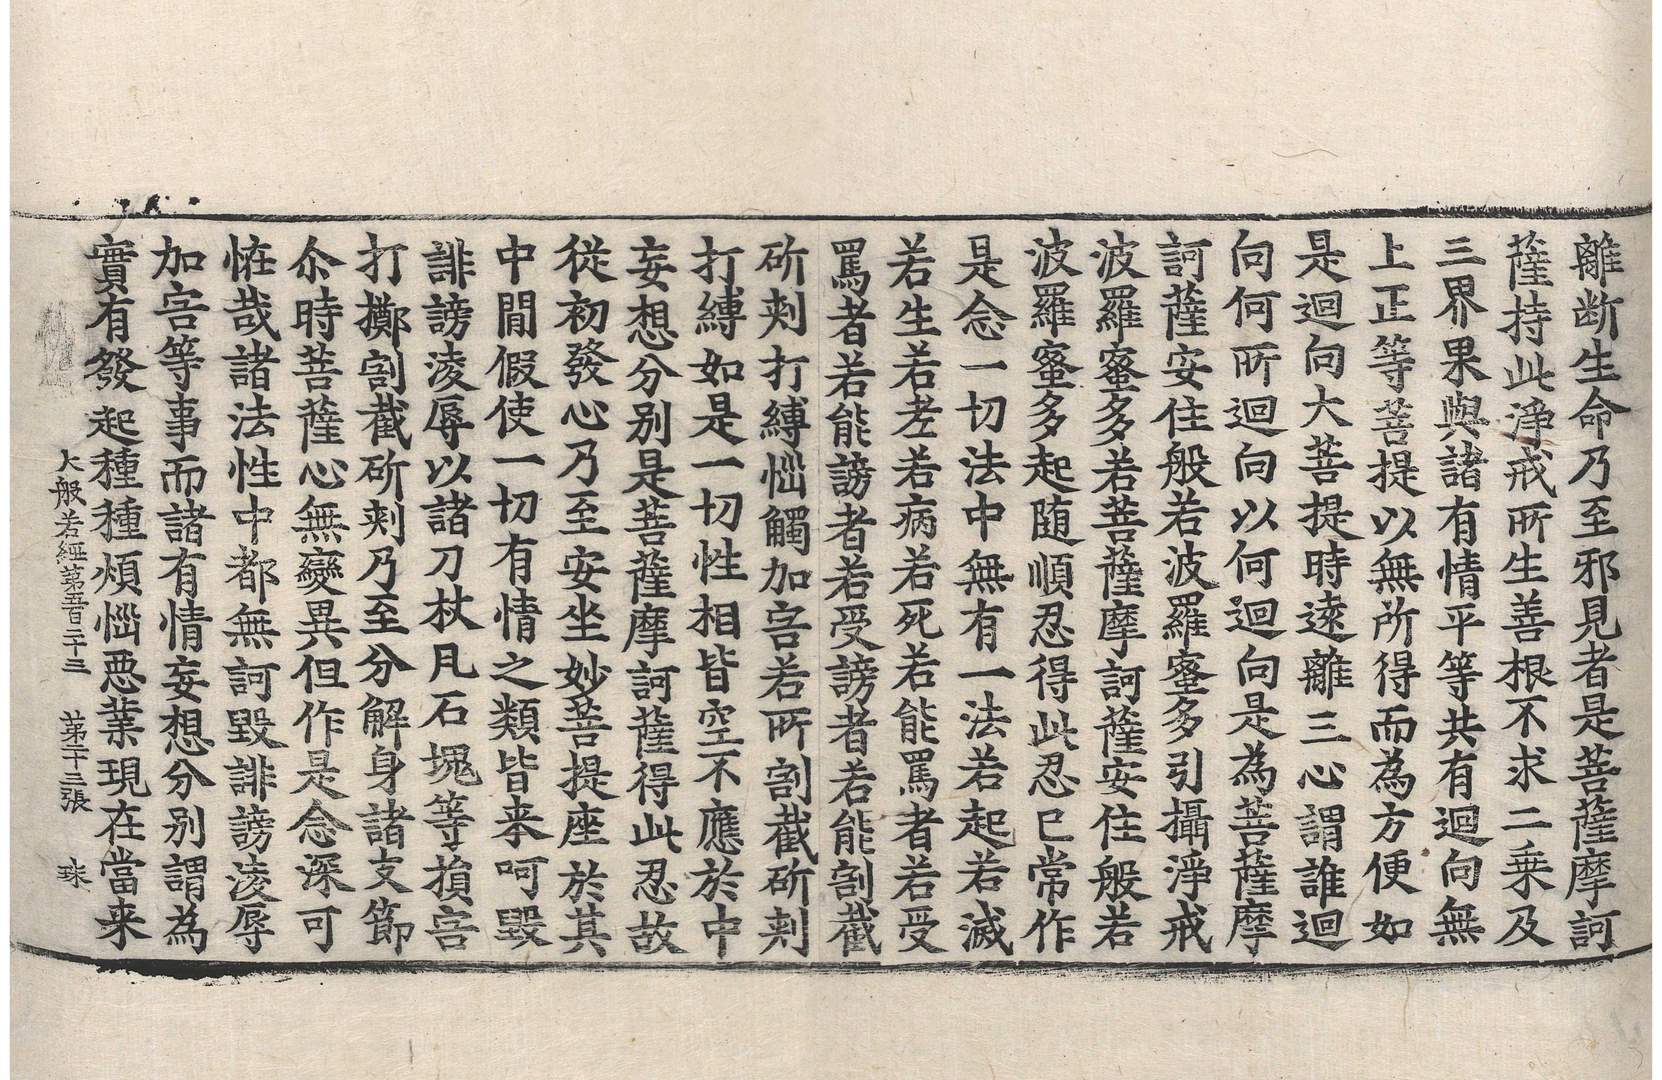 離断生命乃至邪見者是菩薩摩訶
薩持此淨戒所生善根不求二乗及
三界果與諸有情平等共有迴向無
上正等菩提以無所得而為方便如
是迴向大菩提時遠離三心謂誰迴
向何所迴向以何迴向是為菩薩摩
訶薩安住般若波羅蜜多引攝淨戒
波羅蜜多若菩薩摩訶薩安住般若
波羅蜜多起随順忍得此忍已常作
是念一切法中無有一法若起若滅
若生若老若病若死若能罵者若受
罵者若能謗者若受謗者若能割截
斫刺打縛惱觸加害若所割截斫刺
打縛如是一切性相皆空不應於中
妄想分別是菩薩摩訶薩得此忍故
從初發心乃至安坐妙菩提座於其
中間假使一切有情之類皆来呵毀
誹謗淩辱以諸刀杖凡石塊等損害
打擲割截斫刺乃至分解身諸支節
尒時菩薩心無變異但作是念深可
恠哉諸法性中都無訶毀誹謗淩辱
加害等事而諸有情妄想分別謂為
實有發起種種煩惱惡業現在當来
大般若經第五百二十三　第十三張　珠